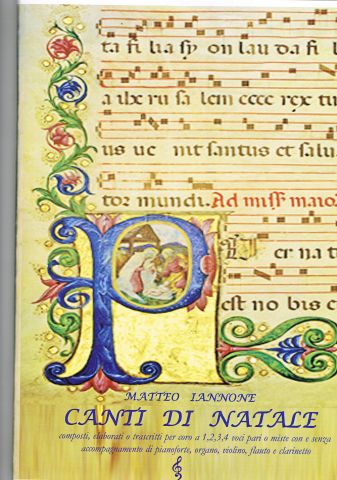 ta fi lia sy on lau da fi l
a ihe ru sa lem ecce rex tu
us ue nit santus et salu
tor mundi. Ad miss maior
P er na t
est no bis c
MATTEO IANNONE
CANTI DI NATALE
composti, elaborati o trascritti per coro a 1,2,3,4 voci pari o miste con e senza
accompagnamento di pianoforte, organo, violino, flauto e clarinetto